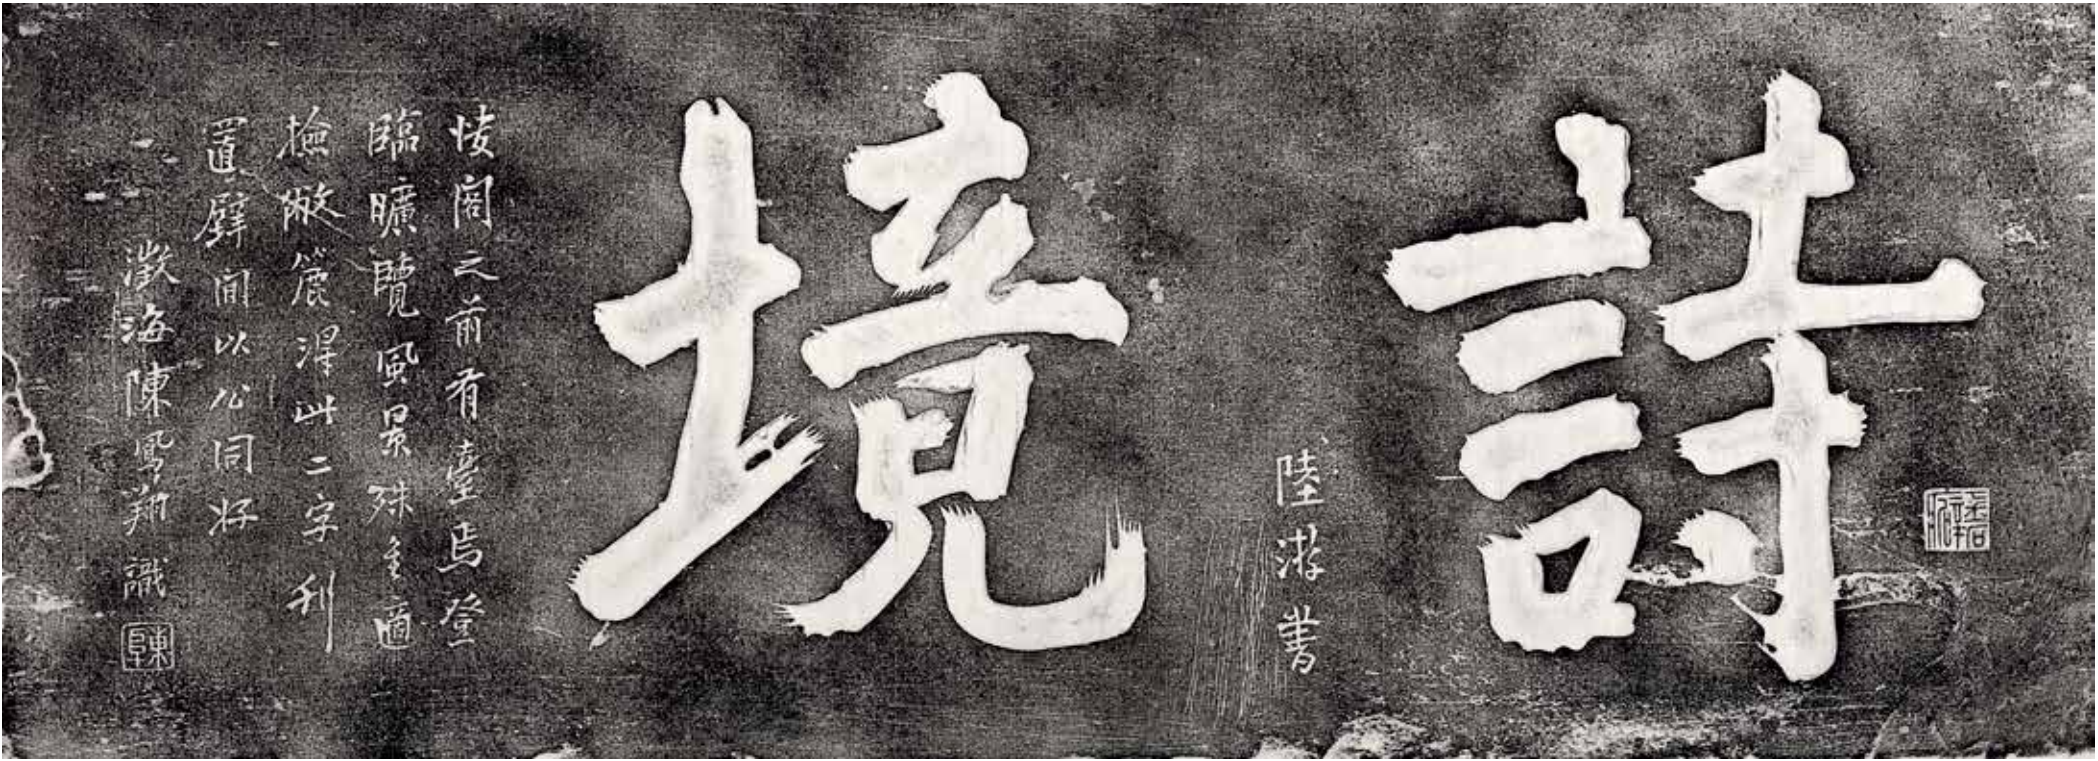 詩境
陸游書
閣之前有臺焉登
臨曠覽風景殊佳適
撿敝簏得此二字刊
置壁間以公同好
澂海陳鳳翔識
陳